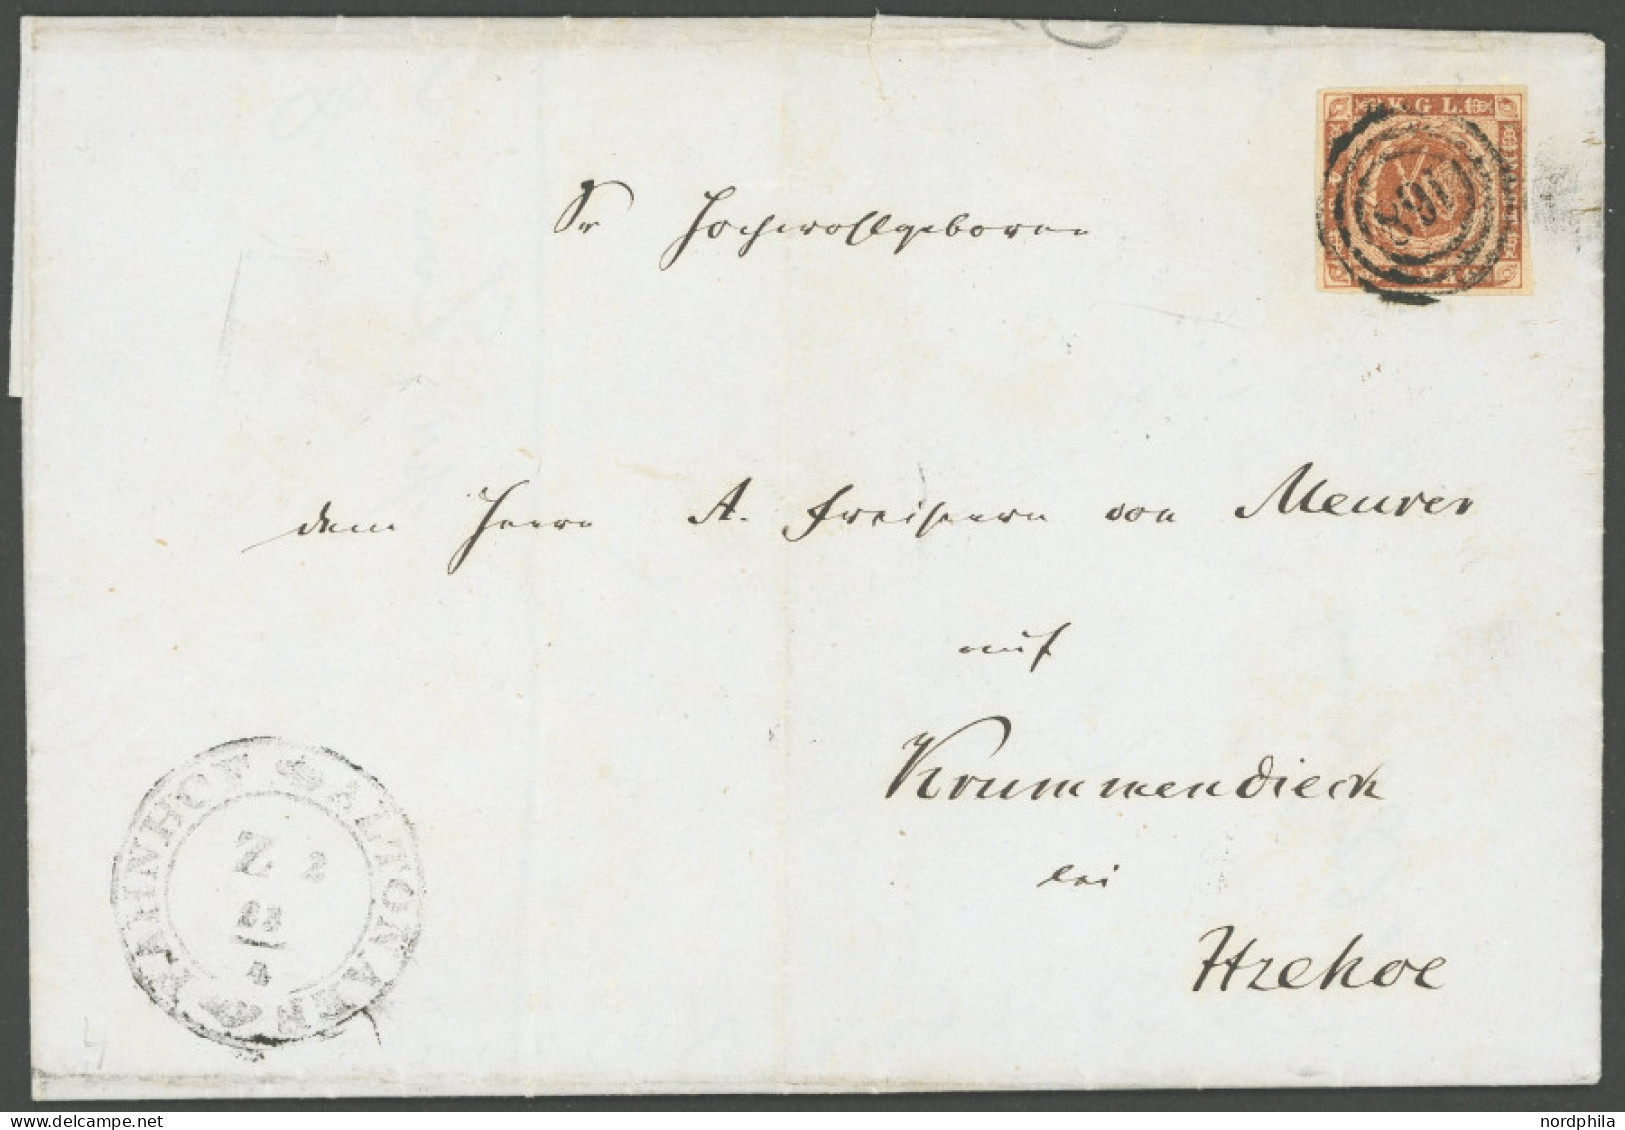 K.G.L.
168
Sr Hochwohlgeboren
dem Herrn A. Freiherrn von Meurer
auf
Krummendieck
bei
Itzehoe
BAHNHOF ALTONAER
Z 2
23
4
nordphila